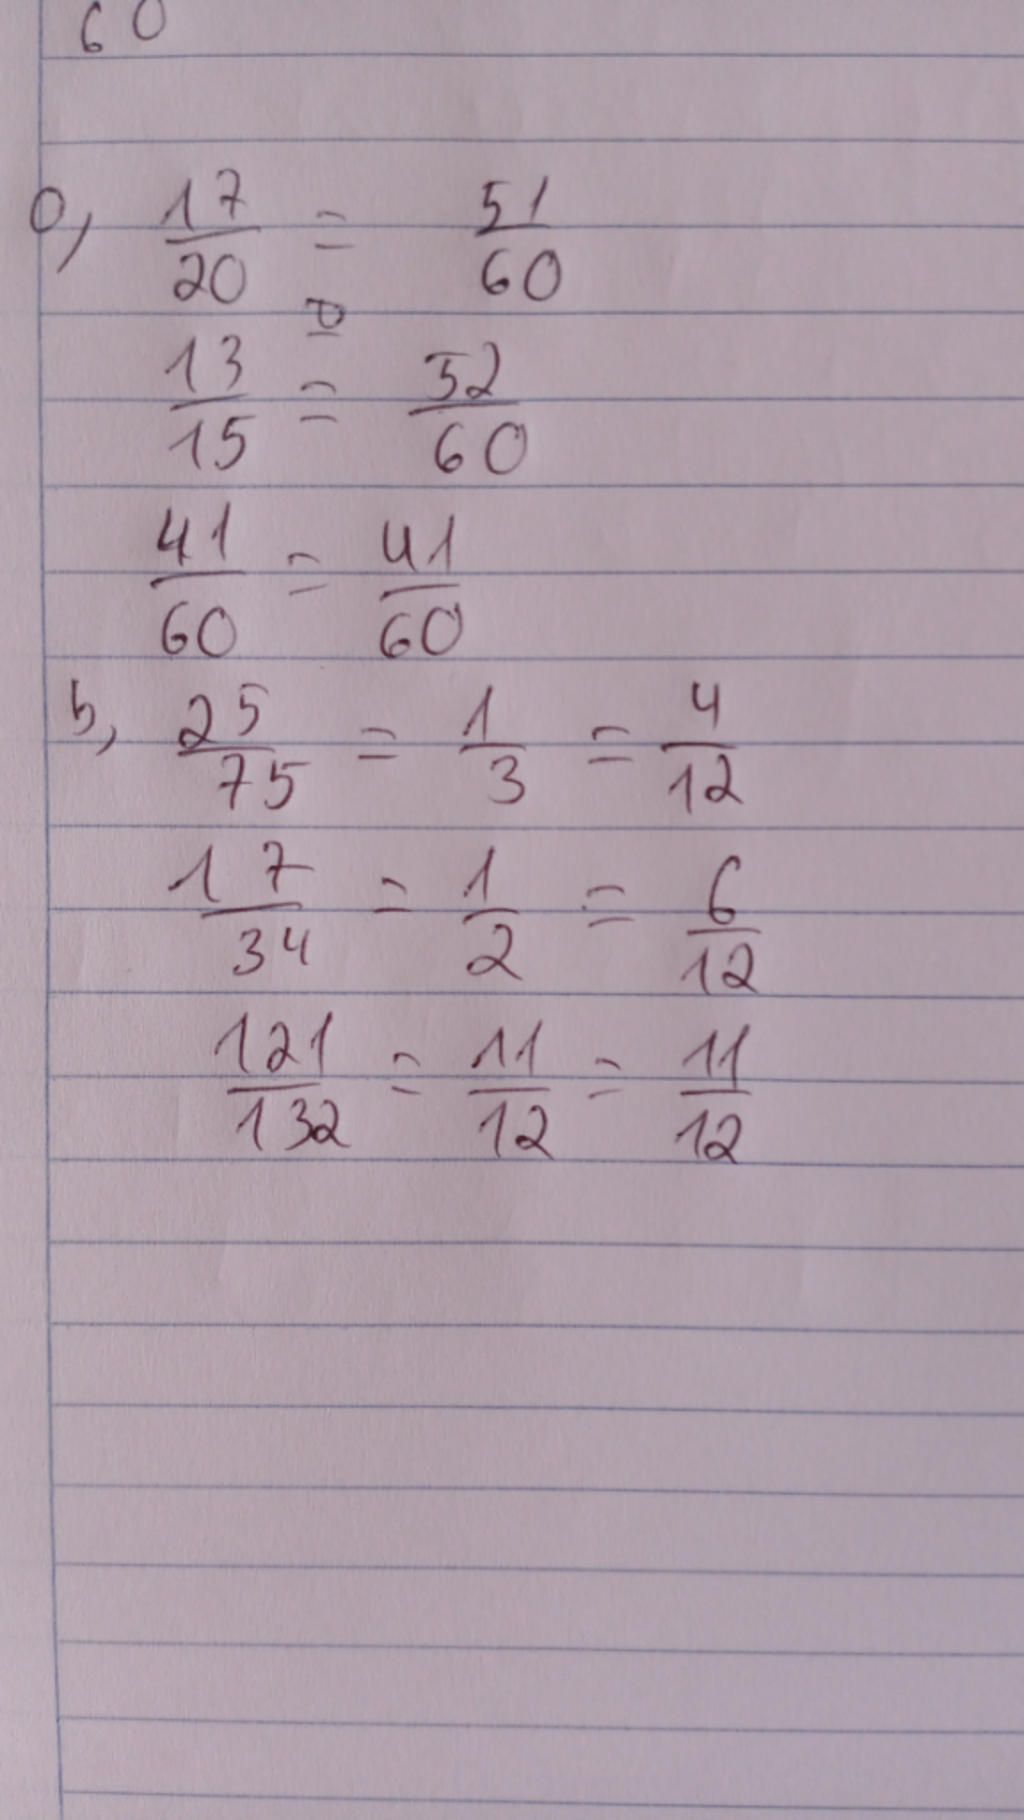 60
a, 17/20 = 51/60
13/15 = 52/60
41/60 = 41/60
b, 25/75 = 1/3 = 4/12
17/34 = 1/2 = 6/12
121/132 = 11/12 = 11/12